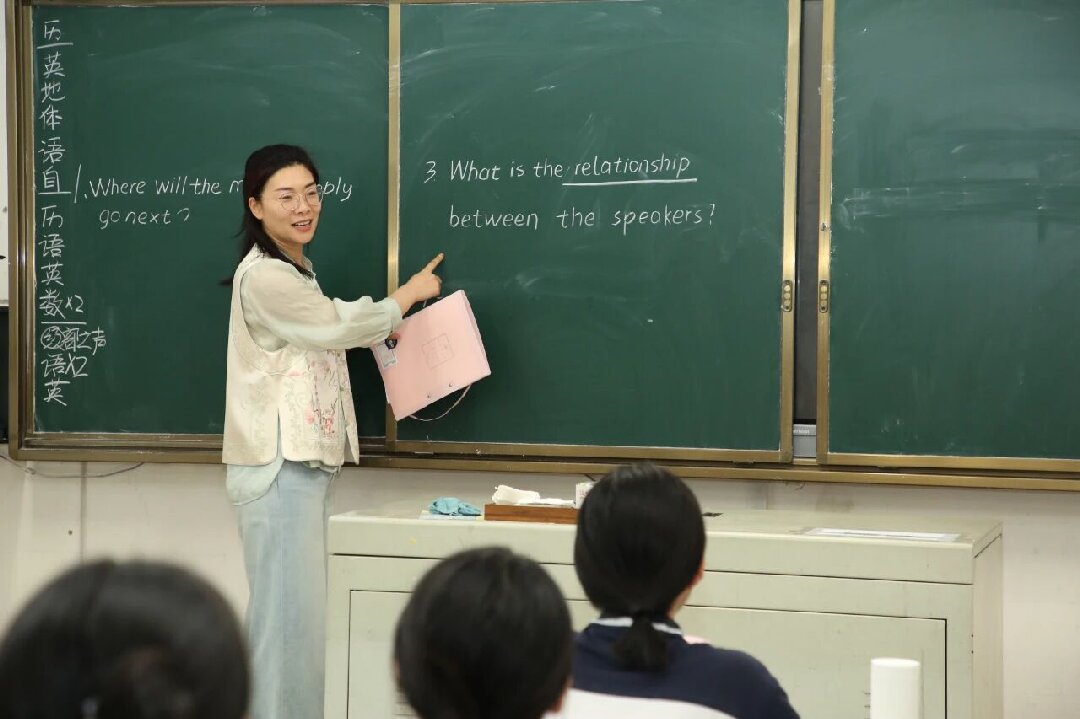 历
英地体语自
历语英数×2
之声
语×2
英
1. Where will the
go next?
3. What is the relationship
between the speakers?